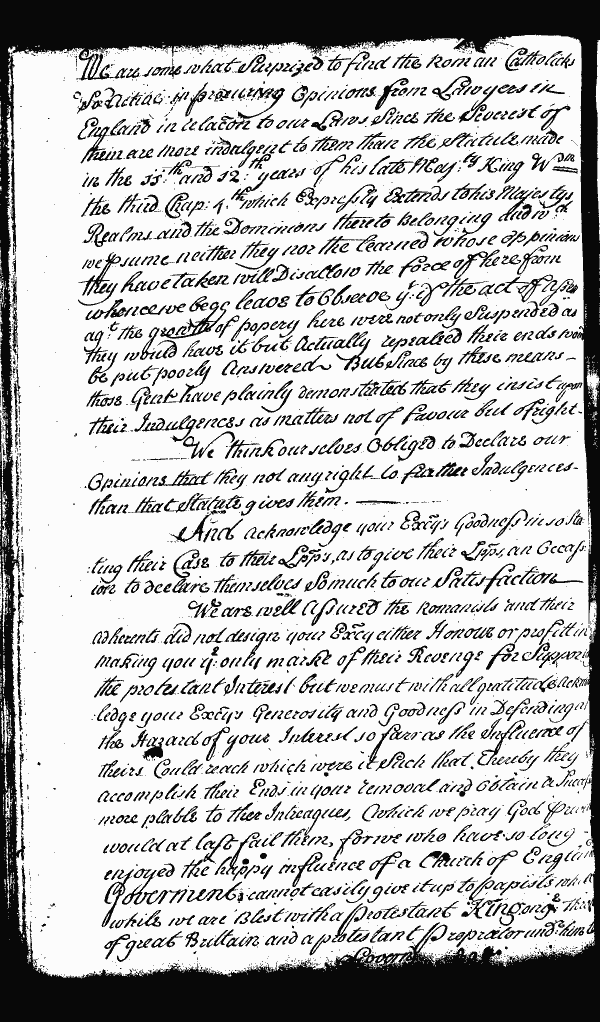 We are some what Surprized to find the Roman Catholicks
So active in procuring Opinions from Lawyers in
England in relacon to our Laws Since the Severest of
them are more indulgent to them than the Statute made
in the 11:th and 12:th years of his late Maj:ty King Wm
the third Chap: 4:th which Expressly Extends to his Majestys
Realms and the Dominions thereto Belonging and wth
we psume neither they nor the Learned whose oppinions
they have taken will Disallow the force of here from
whence we begg leave to Observe yt if the act of
agt the growth of popery here were not only Suspended as
they would have it but Actually repealed their ends
be put poorly Answered But Since by these means
those Gent have plainly demonstrated that they insist upon
their Indulgences as matters not of favour but of right
We think our selves Obliged to Declare our
Opinions that they not any right to further Indulgences
than that Statute gives them.
And acknowledge your Excys Goodness in so Sta
ting their Case to their Lpps, as to give their Lpps, an Occass
ion to declare themselves So much to our Satisfaction
We are well assured the Romanists and their
adherents did not design your Excy either Honour or profitt in
making you ye only marke of their Revenge for Support
the protestant Interest but we must with all gratitude Ackno
ledge your Excys Generosity and Goodness in Defending at
the Hazard of your Interest so farr as the Influence of
theirs Could reach which were it Such that Thereby they
accomplish their Ends in your removal and Obtain a Success
more plable to their Intreagues, (which we pray God
would at last fail them, for we who have so long
enjoyed the happy influence of a Church of England
Goverment, cannot easily give it up to papists
while we are Blest with a protestant King on
of great Brittain and a protestant Proprietor